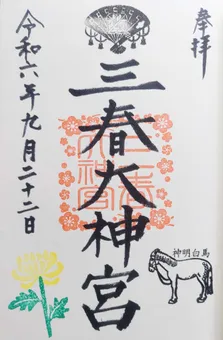 奉拝
三春大神宮
三春大神宮
神明白馬
令和六年九月二十二日